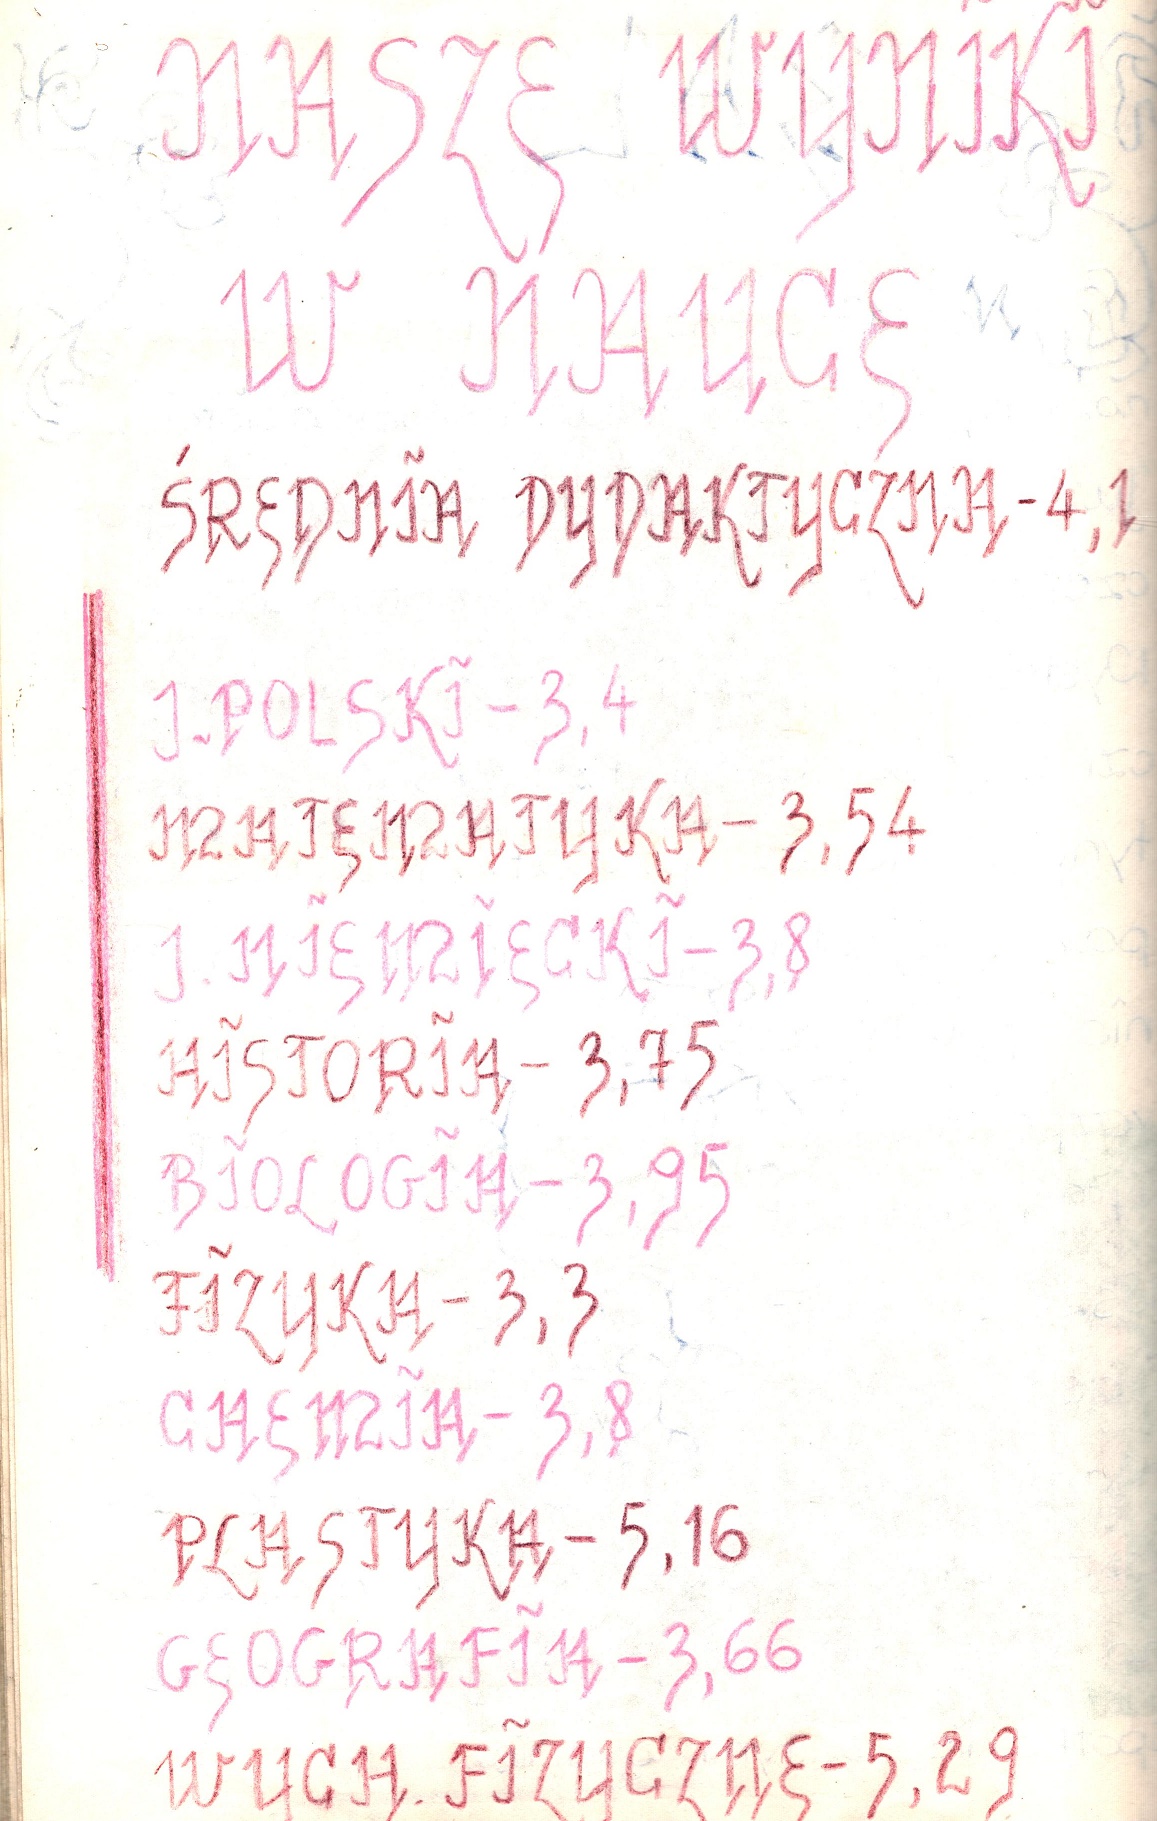 NASZE WYNIKI
W NAUCE
ŚREDNIA DYDAKTYCZNA - 4,1
J. POLSKI - 3,4
MATEMATYKA - 3,54
J. NIEMIECKI - 3,8
HISTORIA - 3,75
BIOLOGIA - 3,95
FIZYKA - 3,3
CHEMIA - 3,8
PLASTYKA - 5,16
GEOGRAFIA - 3,66
WYCH. FIZYCZNE - 5,29